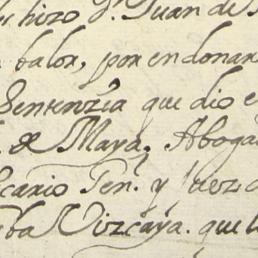 hizo Dn. Juan de
balor, por en donar
Sentenzia que dio e
de Maya, Aboga
cario Ten. y Juez
Vizcaya. que l